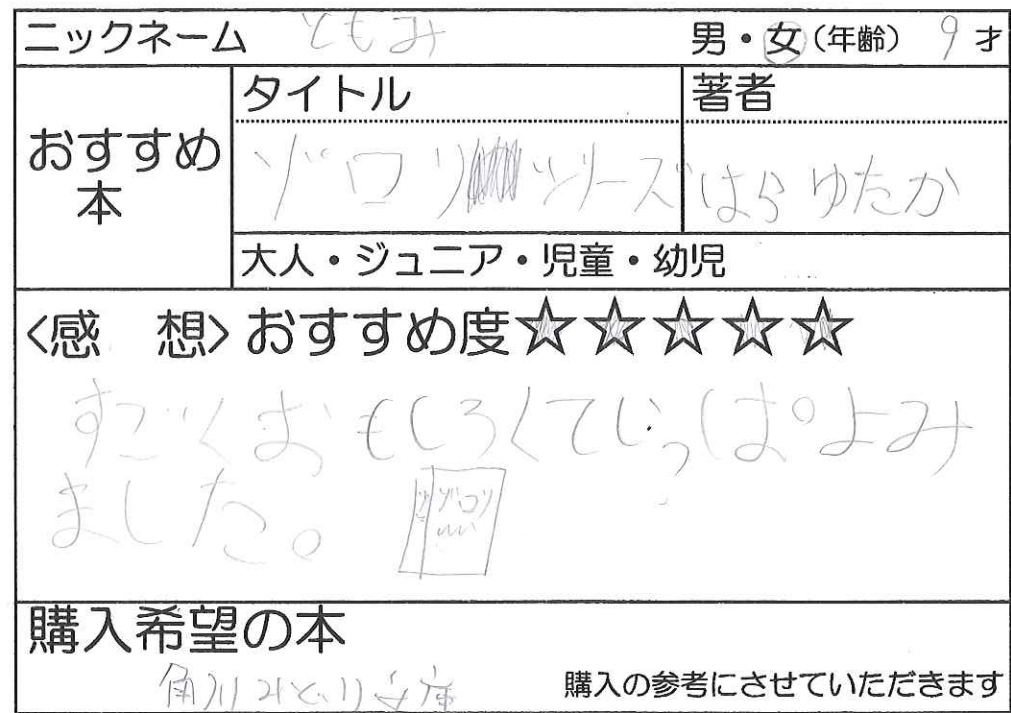 ニックネーム ともみ 男・女(年齢) 9才
おすすめ本
タイトル 著者
ゾロリ シリーズ はらゆたか
大人・ジュニア・児童・幼児
<感 想> おすすめ度☆☆☆☆☆
すごくおもしろくていっぱよみ
ました。
ゾロリ
購入希望の本
角川みどり文庫 購入の参考にさせていただきます